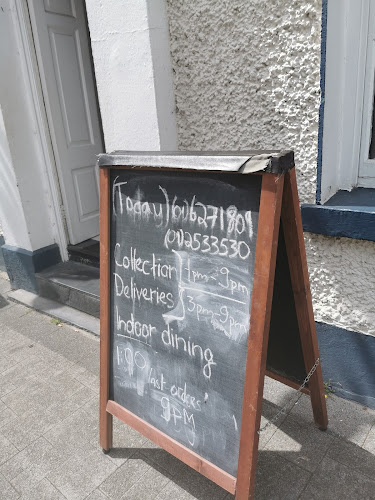 (Today) (016271809
(012533530
Collection } 1pm-9pm
Deliveries } 3pm-9pm
Indoor dining
1:00 last ordres'
9PM